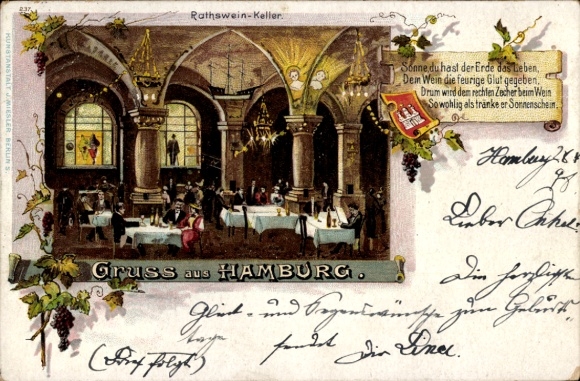 237.
Rathswein-Keller.
KUNSTANSTALT J. MIESLER, BERLIN S.
Sonne du hast der Erde das Leben,
Dem Wein die feurige Glut gegeben,
Drum wird dem rechten Zecher beim Wein
So wohlig als tränke er Sonnenschein.
GRUSS AUS HAMBURG.
Hamburg
Lieber Onkel.
Die herzlichsten
Glück- und Segenswünsche zum Geburts
tage sendet Dir
(Brief folgt)